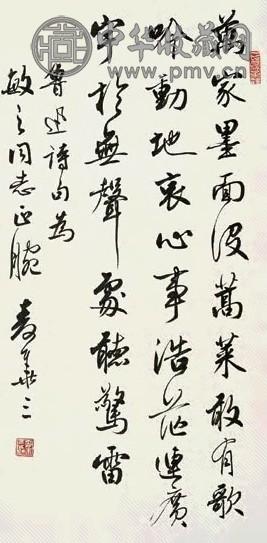 中华收藏网
www.pmv.cn
萬家墨面没蒿萊敢有歌
吟動地哀心事浩茫連廣
宇於無聲處聽驚雷
魯迅詩句為
敏之同志正腕 麦華三